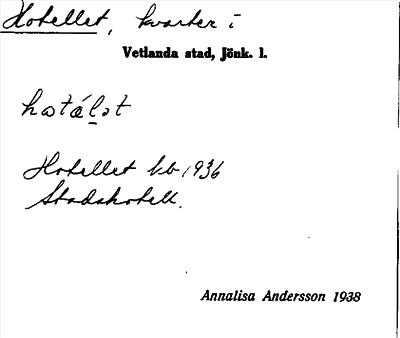 Hotellet, kvarter i
Vetlanda stad, Jönk. l.
hotä́l̠ət
Hotellet kb 1936
Stadshotell.
Annalisa Andersson 1938